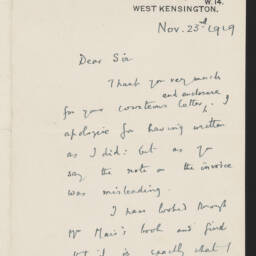 W.14.
WEST KENSINGTON.
Nov. 23rd 1919
Dear Sir
Thank you very much
for your courteous letter, and enclosure. I
apologise for having written
as I did: but as you
say the note on the invoice
was misleading.
I have looked through
Mr 's book and find
that it is exactly what I